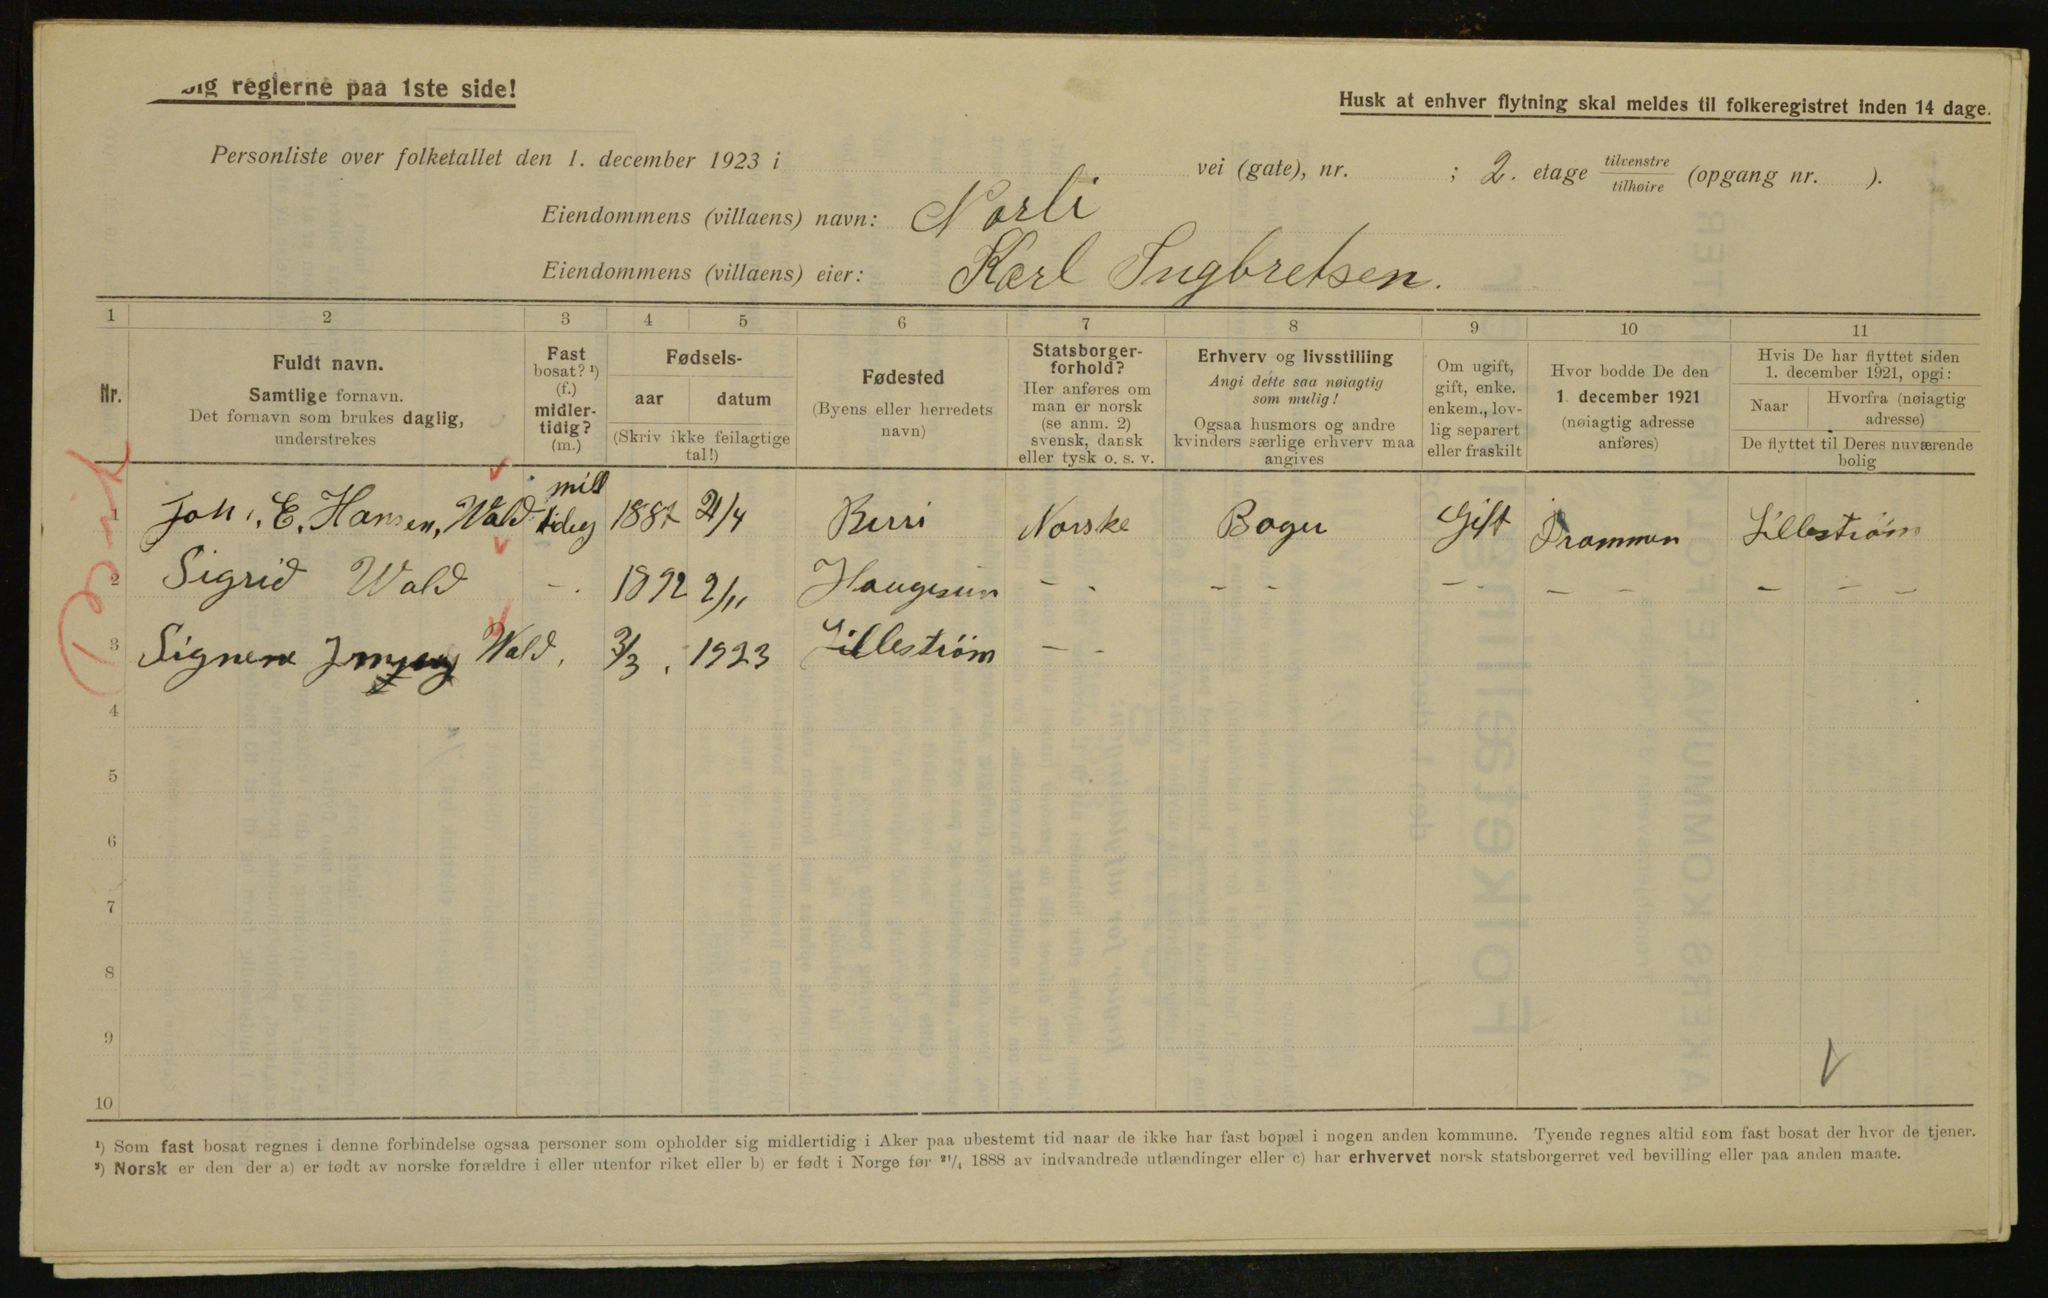 sig reglerne paa 1ste side!
Husk at enhver flytning skal meldes til folkeregistret inden 14 dage.
Personliste over folketallet den 1. december 1923 i vei (gate), nr. ; 2. etage tilvenstre/tilhøire (opgang nr. ).
Eiendommens (villaens) navn: Norli
Eiendommens (villaens) eier: Karl Ingbretsen.
1 2 3 4 5 6 7 8 9 10 11
Nr.
Fuldt navn.
Samtlige fornavn.
Det fornavn som brukes daglig,
understrekes
Fast
bosat? ¹)
(f.)
midler-
tidig?
(m.)
Fødsels-
aar datum
(Skriv ikke feilagtige
tal!)
Fødested
(Byens eller herredets
navn)
Statsborger-
forhold?
Her anføres om
man er norsk
(se anm. 2)
svensk, dansk
eller tysk o. s. v.
Erhverv og livsstilling
Angi dette saa nøiagtig
som mulig!
Ogsaa husmors og andre
kvinders særlige erhverv maa
angives
Om ugift,
gift, enke.
enkem., lov-
lig separert
eller fraskilt
Hvor bodde De den
1. december 1921
(nøiagtig adresse
anføres)
Hvis De har flyttet siden
1. december 1921, opgi:
Naar Hvorfra (nøiagtig
adresse)
De flyttet til Deres nuværende
bolig
1 Joh. E. Hansen, Wald 1887 21/4 Birri Norske Gift Drammen Lillestrøm
2 Sigrid Wald - . 1892 2/11 Haugesun - - - - - - - - - - -
3 Wald. 3/3 . 1923 Lillestrøm - -
4
5
6
7
8
9
10
¹) Som fast bosat regnes i denne forbindelse ogsaa personer som opholder sig midlertidig i Aker paa ubestemt tid naar de ikke har fast bopæl i nogen anden kommune. Tyende regnes altid som fast bosat der hvor de tjener.
²) Norsk er den der a) er født av norske forældre i eller utenfor riket eller b) er født i Norge før ²¹/₄ 1888 av indvandrede utlændinger eller c) har erhvervet norsk statsborgerret ved bevilling eller paa anden maate.